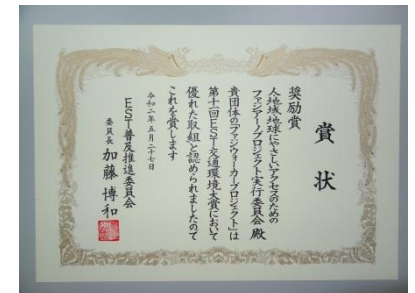 賞状
奨励賞
人・地域・地球にやさしいアクセスのための
ファンジープロジェクト実行委員会 殿
貴団体の「ファンジウォーカープロジェクト」は
第十一回EST交通環境大賞において
優れた取組と認められましたので
これを賞します
令和二年五月二十七日
EST普及推進委員会
委員長 加藤 博和